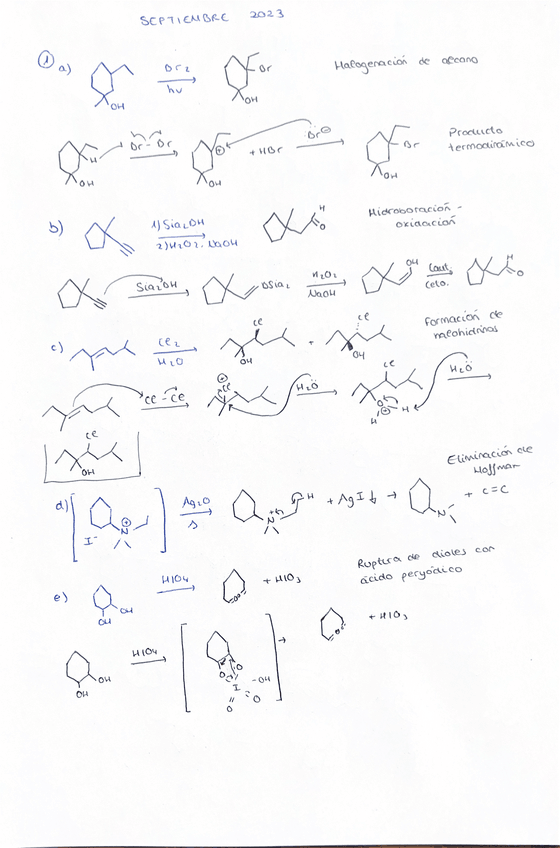 SEPTIEMBRE 2023
① a) Br₂ hν Br OH OH Halogenación de alcano
H Br - Br ⊕ + HBr Br⊖ Br OH OH OH Producto termodinámico
b) 1) Sia₂OH 2) H₂O₂, NaOH H O Hidroboración - oxidación
Sia₂OH OSia₂ H₂O₂ NaOH OH Taut. ceto. H O
c) Cl₂ H₂O Cl OH + Cl OH Formación de
Cl - Cl ⊕ Cl H₂O Cl O ⊕ H H H₂O
Cl OH
d) N ⊕ I⁻ Ag₂O Δ N H + AgI ↓ → N + C=C Eliminación de Hoffman
e) OH OH HIO4 + HIO₃ Ruptura de dioles con ácido peryódico
OH OH HIO4 O O I -OH =O O → + HIO₃